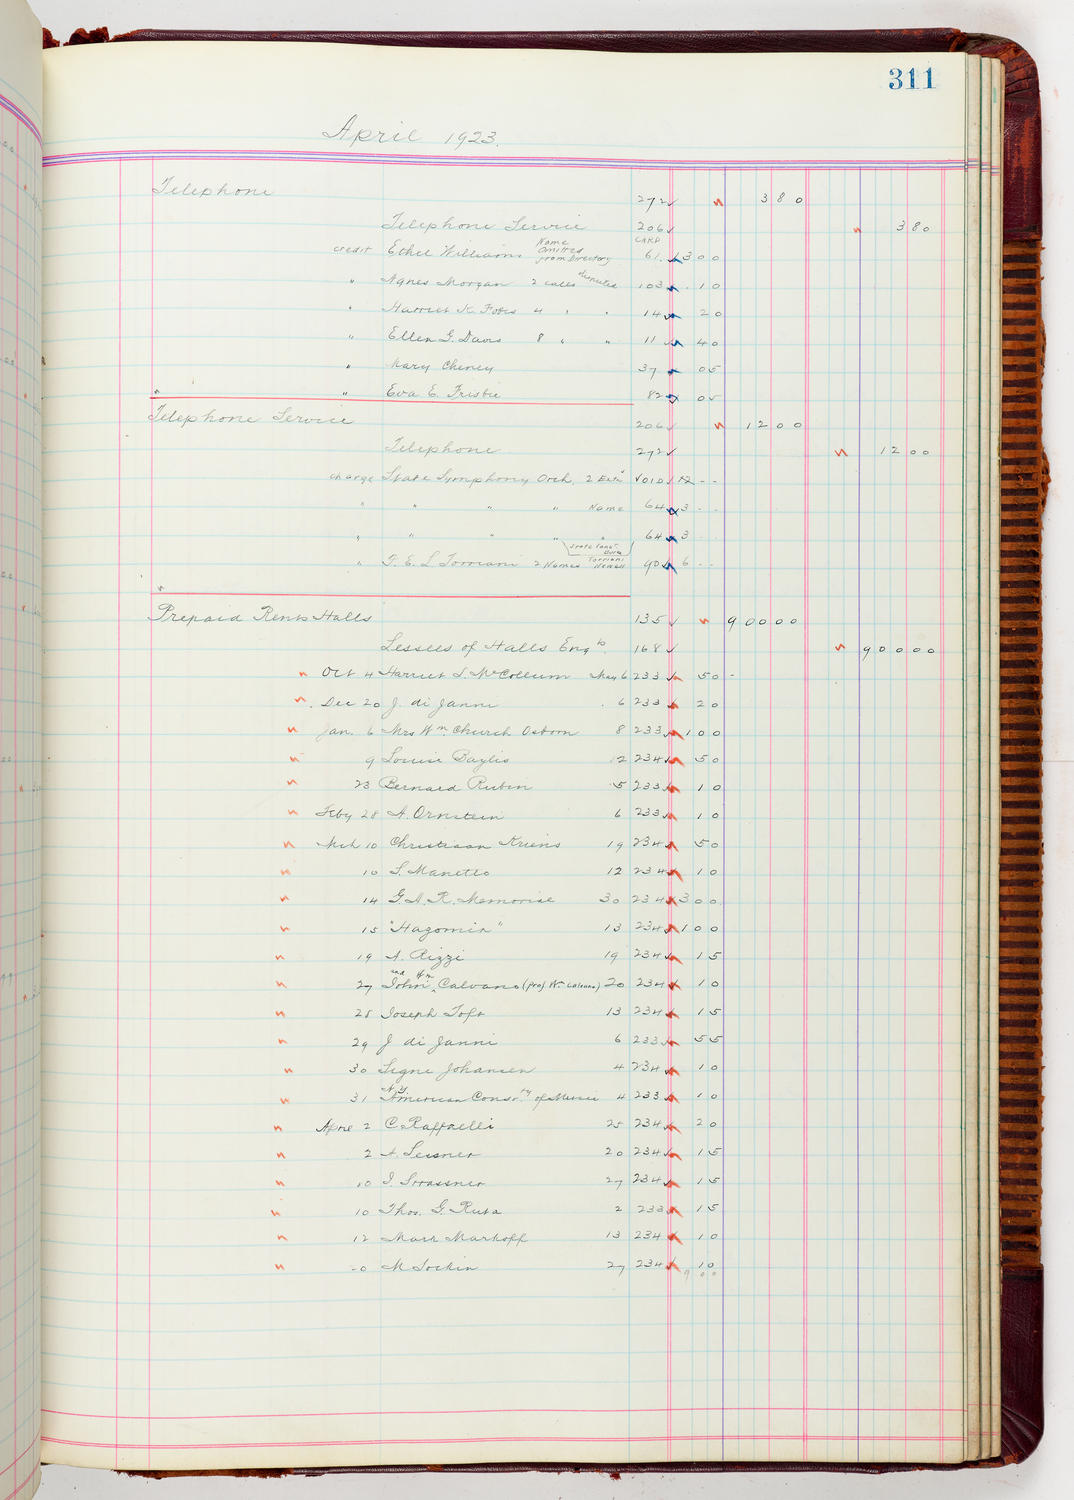 311
April 1923.
Telephone 272 3 8 0
Telephone Service 206 3 8 0
CARD
credit Ethel Williams Name Omitted from Directory 61. 3 0 0
" Agnes Morgan 2 calls disputed 103 10
" Harriet K. Fobes 4 " " 14 20
" Ellen G. Davis 8 " " 11 40
" Mary Cheney 37 05
" " Eva E. Frisbie 82 05
Telephone Service 206 1 2 0 0
Telephone 272 1 2 0 0
charge State Symphony Orch, 2 VOID 12 - -
" " " " Name 64 3 - -
" " " " " 64 3
" F. E. L. Torriani 2 Names Torriani Newell 90 6 - -
Prepaid Rents Halls 135 9 0 0 0 0
Lessees of Halls Eng ts. 168 9 0 0 0 0
Oct 4 Harriet S. McCollum May 6 233 50 -
Dec 20 J. di Janni 6 233 20
Jan. 6 Mrs Wm. Church Osborn 8 233 100
9 Louise Baylis 12 234 50
23 Bernard Rubin 5 233 10
Feby 28 A. Ornstein 6 233 10
Mch 10 Christiaan Kriens 19 234 50
10 S. Manetto 12 234 10
14 G. A. R. Memorial 30 234 300
15 "Hagomin" 13 234 100
19 A. Rizzi 19 234 15
27 John and Wm Calvano (Prof Wm Calvano) 20 234 10
28 Joseph Tofo 13 234 15
29 J di Janni 6 233 55
30 Signe Johansen 4 234 10
31 N.Y. American Consv.ty of Music 4 233 10
April 2 C Raffaelli 25 234 20
2 A. Leisner 20 234 15
10 I. Strassner 27 234 15
10 Thos. G. Ruta 2 233 15
12 Mark Markoff 13 234 10
20 M Sorkin 27 234 10
9 0 0